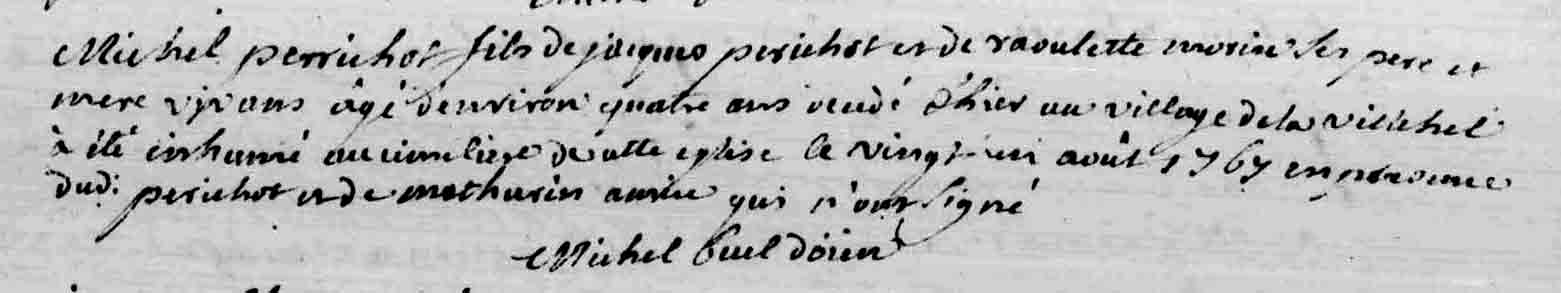 Michel perrichot fils de jacques perichot et de raoulette morin ses pere et
mere vivans âgé denviron quatre ans decedé d'hier au village de la villehel
à été inhumé au cimetiere de cette eglise le vingt un août 1767 en presence
dud: perichot et de mathurin qui n'ont signé
Michel